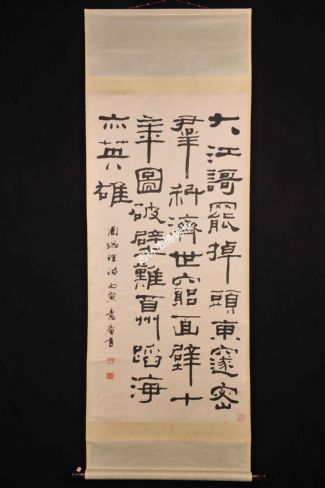 大江謌罷掉頭東邃密
羣科濟世窮面壁十
年圖破壁難酬蹈海
亦英雄
周總理詩 丙寅 書